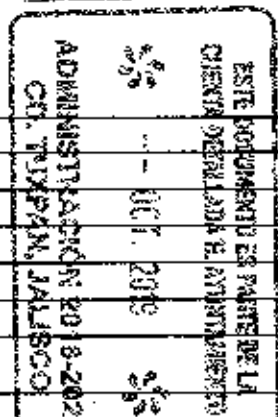 ESTE DOCUMENTO ES PARTE DE LA
CUENTA DETALLADA H. AYUNTAMIENTO
-- OCT. 2019
ADMINISTRACIÓN 2018-202
CD. TUXPAN, JALISCO